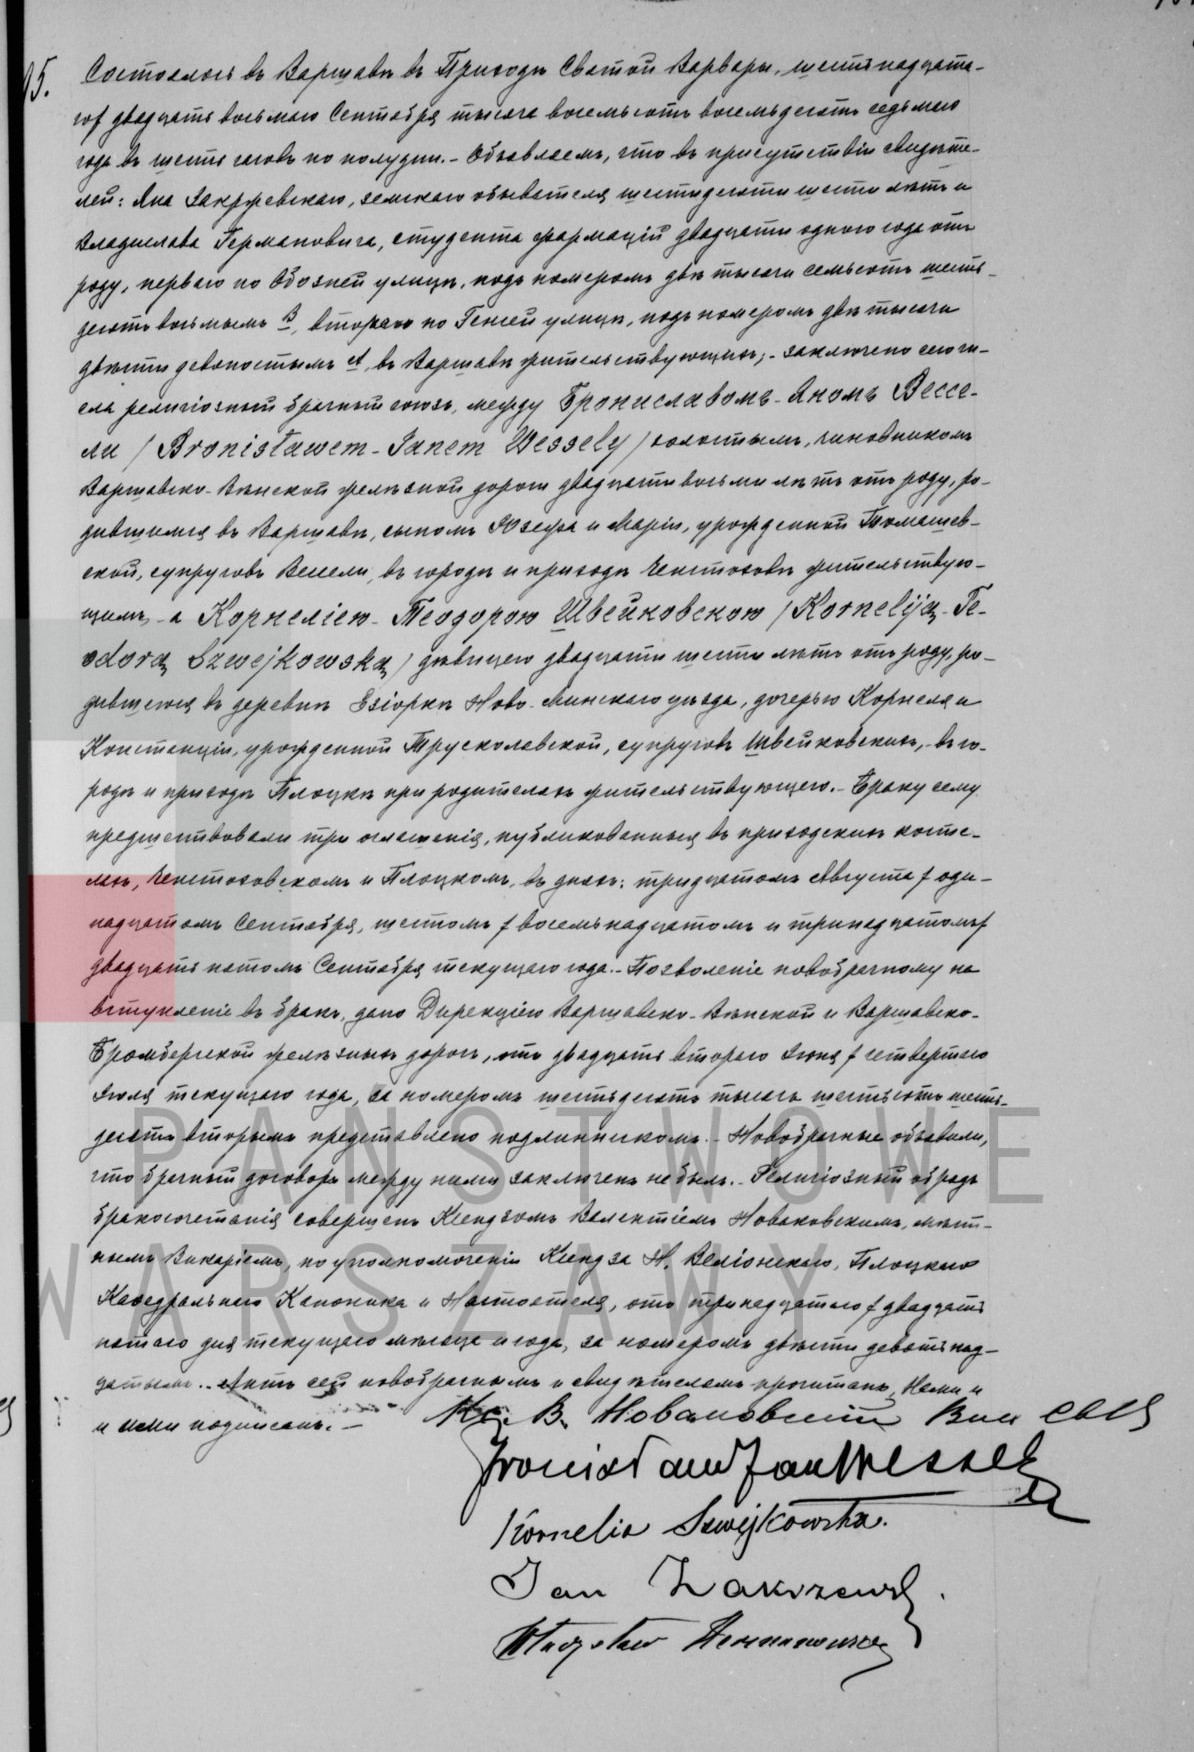 95.
Состоялось въ Варшавѣ въ Приходѣ Святой Варвары, шестнадцата-
го/ двадцать восьмаго Сентября тысяча восемьсотъ восемьдесятъ седьмаго
года въ шесть часовъ по полудни. - Объявляемъ, что въ присутствіи свидѣте-
лей: Яна Закржевскаго, земскаго обывателя шестидесяти шести лѣтъ и
Владислава Германовича, студента фармаціи двадцати одного года отъ
роду, перваго по Обозней улицѣ, подъ номеромъ двѣ тысячи семьсотъ шесть-
десятъ восьмымъ В, втораго по Генсей улицѣ, подъ номеромъ двѣ тысячи
двѣсти девяностымъ А, въ Варшавѣ жительствующихъ; - заключено сего чи-
сла религіозный брачный союзъ, между Брониславомъ-Яномъ Вессе-
ли / Bronisławem-Janem Wessely / холостымъ, чиновникомъ
Варшавско-Вѣнской желѣзной дороги двадцати восьми лѣтъ отъ роду, ро-
дившимся въ Варшавѣ, сыномъ Юзефа и Маріи, урожденной Томашев-
ской, супруговъ Весели, въ городѣ и приходѣ Ченстоховѣ жительствую-
щимъ, - а Корнеліею-Теодорою Швейковскою / Korneliją-Te-
odorą Szwejkowską / дѣвицею двадцати шести лѣтъ отъ роду, ро-
дившеюся въ деревнѣ Езіоркѣ Ново-Минскаго уѣзда, дочерью Корнеля и
Констанціи, урожденной Трусколавской, супруговъ Швейковскихъ, - въ го-
родѣ и приходѣ Плоцкѣ при родителяхъ жительствующею. - Браку сему
предшествовали три оглашенія, публикованныя въ приходскихъ косте-
лахъ, Ченстоховскомъ и Плоцкомъ, въ дняхъ: тридцатомъ Августа / оди-
надцатомъ Сентября, шестомъ / восемьнадцатомъ и тринадцатомъ /
двадцать пятомъ Сентября текущаго года. - Позволеніе новобрачному на
вступленіе въ бракъ, дано Дирекціею Варшавско-Вѣнской и Варшавско-
Бромбергской желѣзныхъ дорогъ, отъ двадцать втораго Іюня / четвертаго
Іюля текущаго года, за номеромъ шестьдесятъ тысячъ шестьсотъ шесть-
десятъ вторымъ представлено подлинникомъ. - Новобрачные объявили,
что брачный договоръ между ними заключенъ не былъ. - Религіозный обрядъ
бракосочетанія совершенъ Ксендзомъ Валентіемъ Новаковскимъ, мѣст-
нымъ Викаріемъ, по уполномоченію Ксендза Н. Веліонскаго, Плоцкаго
Каѳедральнаго Каноника и Настоятеля, отъ тринадцатаго / двадцать
пятаго дня текущаго мѣсяца и года, за номеромъ двѣсти девятьнад-
цатымъ. - Актъ сей новобрачнымъ и свидѣтелямъ прочитанъ, Нами и
и ими подписанъ. -
Кс. В. Новаковскій Вик
Bronisław Jan Wessely
Kornelia Szwejkowska.
Jan Zakrzewski.
Władysław Hermanowicz
PAŃSTWOWE
WARSZAWY